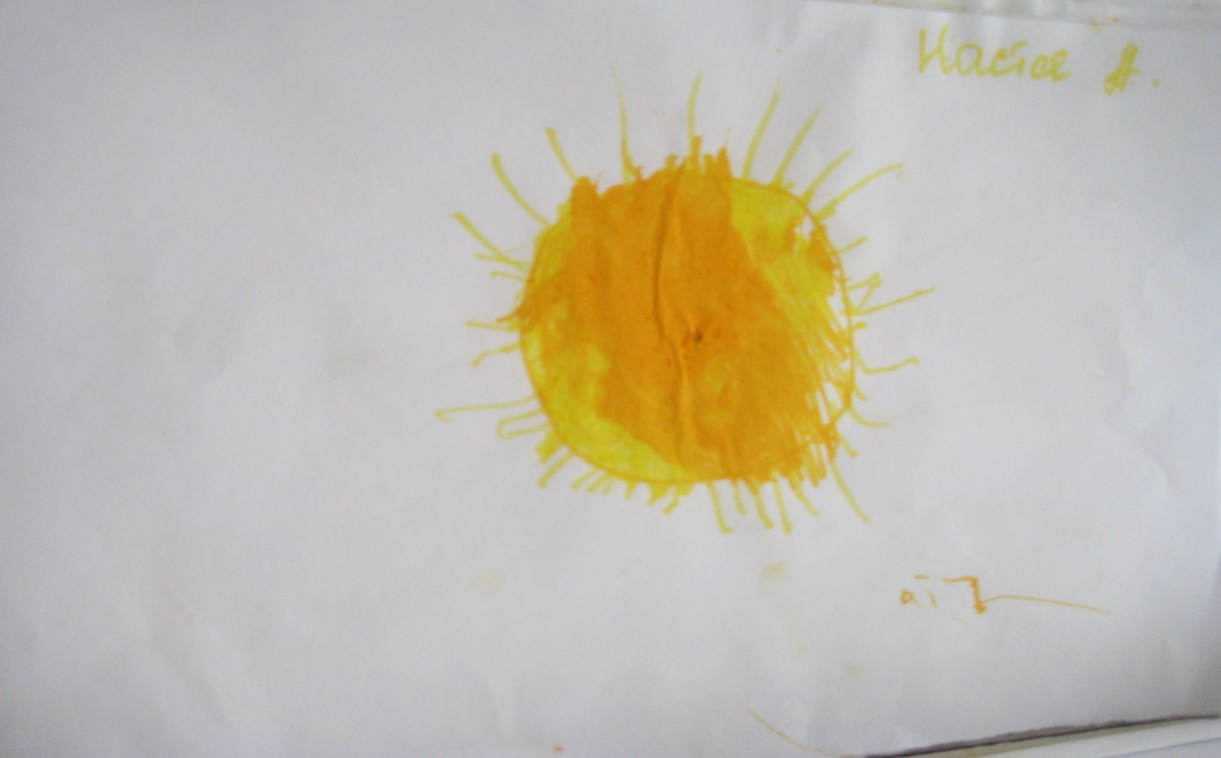 Настя А.